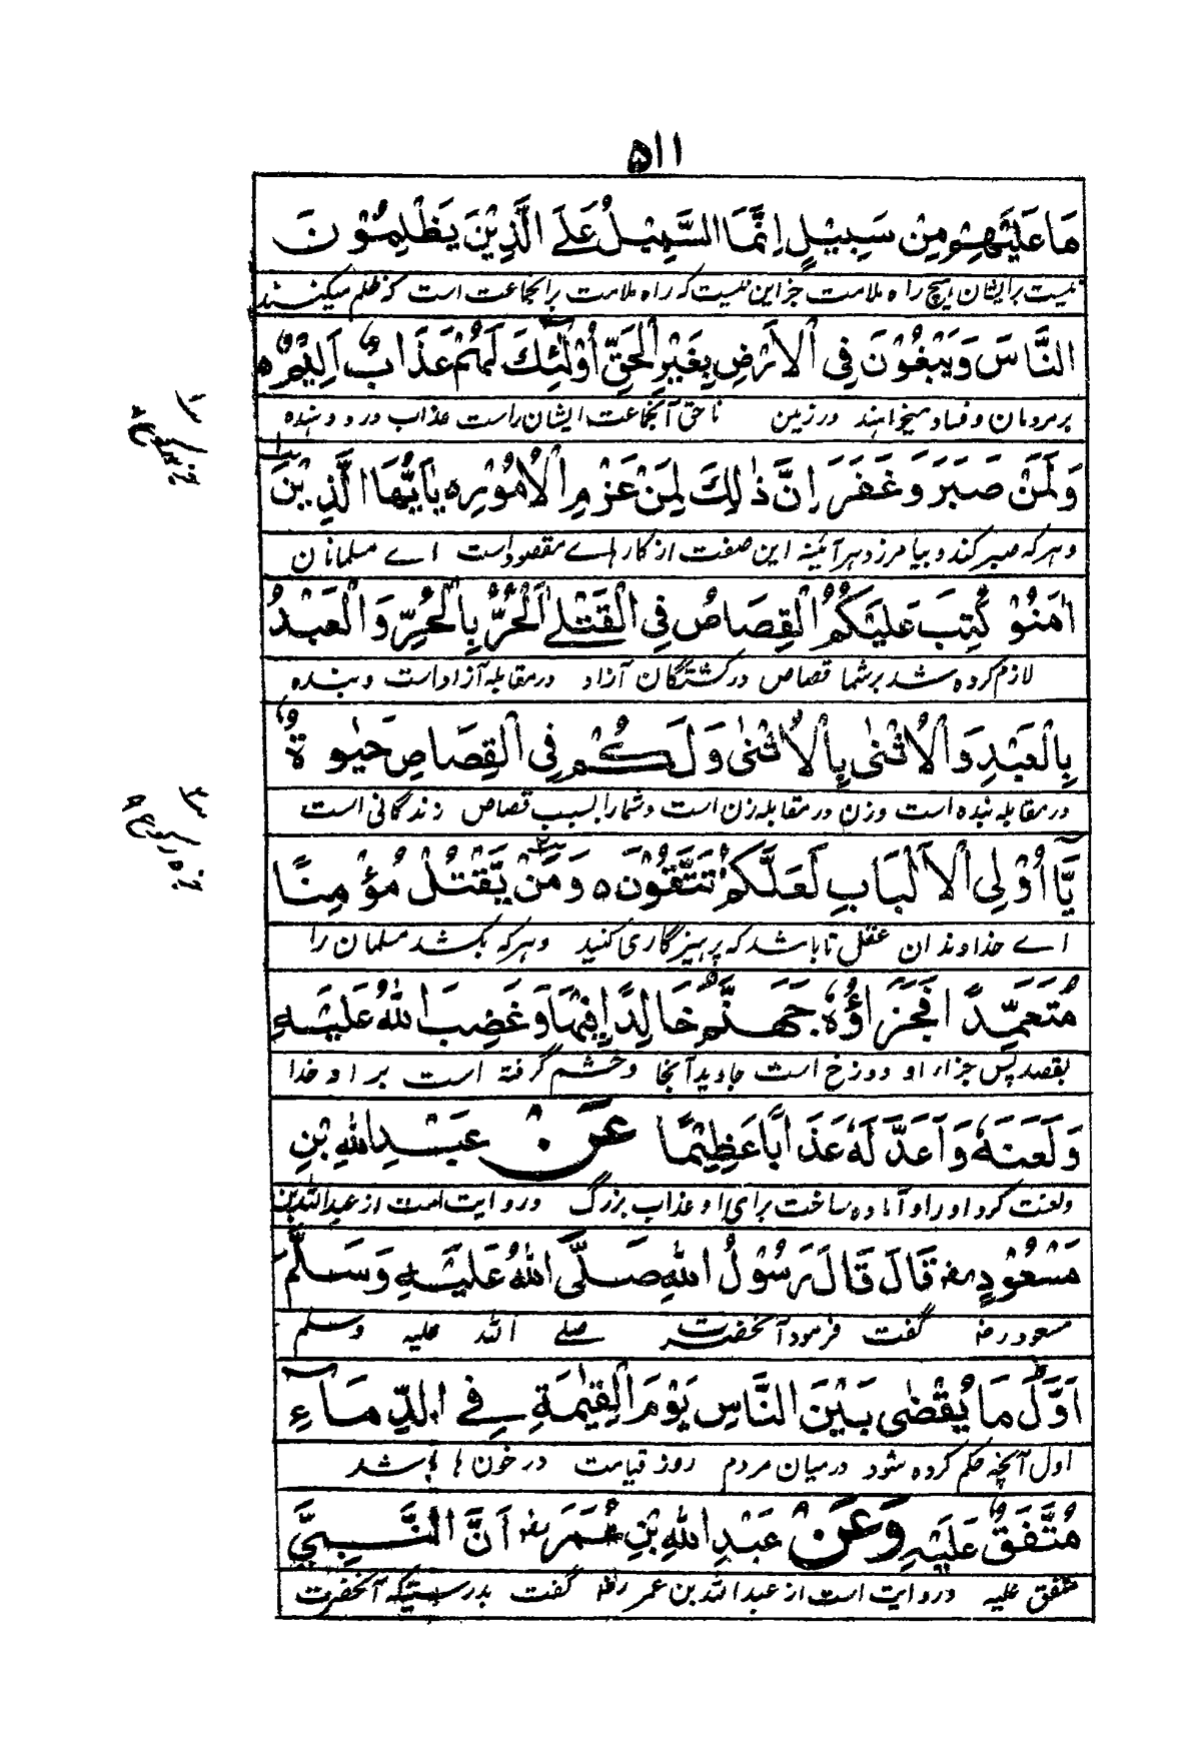 ۵۱۱
مَا عَلَيْهِمْ مِنْ سَبِيْلٍ اِنَّمَا السَّبِيْلُ عَلَى الَّذِيْنَ يَظْلِمُوْنَ
نیست برایشان هیچ راه ملامت جز این نیست که راه ملامت برآنجماعت است که ظلم میکنند
النَّاسَ وَيَبْغُوْنَ فِى الْاَرْضِ بِغَيْرِ الْحَقِّ اُولٰٓئِكَ لَهُمْ عَذَابٌ اَلِيْمٌ ه
بر مردمان و فساد میخواهند در زمین ناحق آنجماعت ایشان راست عذاب درد دهنده
وَلَمَنْ صَبَرَ وَغَفَرَ اِنَّ ذٰلِكَ لَمِنْ عَزْمِ الْاُمُوْرِ ه يٰاَيُّهَا الَّذِيْنَ
و هر که صبر کند و بیامرزد هر آئینه این صفت از کارهاے مقصود است اے مسلمانان
اٰمَنُوْ كُتِبَ عَلَيْكُمُ الْقِصَاصُ فِى الْقَتْلٰے اَلْحُرُّ بِالْحُرِّ وَالْعَبْدُ
لازم کرده شد بر شما قصاص در کشتگان آزاد در مقابله آزاد است و بنده
بِالْعَبْدِ وَالْاُنْثٰى بِالْاُنْثٰى وَلَكُمْ فِى الْقِصَاصِ حَيٰوةٌ
در مقابله بنده است وزن در مقابله زن است و شمارا بسبب قصاص زندگانی است
يَّا اُوْلِى الْاَلْبَابِ لَعَلَّكُمْ تَتَّقُوْنَ ه وَمَنْ يَّقْتُلْ مُؤْمِنًا
اے خداوندان عقل تا باشد که پرهیزگاری کنید و هر که بکشد مسلمان را
مُتَعَمِّدًا فَجَزَاؤُهٗ جَهَنَّمُ خَالِدًا فِيْهَا وَغَضِبَ اللّٰهُ عَلَيْهِ
بقصد پس جزاء او دوزخ است جاوید آنجا و خشم گرفته است بر او خدا
وَلَعَنَهٗ وَاَعَدَّ لَهٗ عَذَابًا عَظِيْمًا عَنْ عَبْدِ اللّٰهِ بْنِ
و لعنت کرد او را و آماده ساخت برای او عذاب بزرگ و روایت است از عبدالله بن
مَسْعُوْدٍ رض قَالَ قَالَ رَسُوْلُ اللّٰهِ صَلَّى اللّٰهُ عَلَيْهِ وَسَلَّمَ
مسعود رض گفت فرمود آنحضرت صلے اللّٰه علیه وسلم
اَوَّلُ مَا يُقْضٰى بَيْنَ النَّاسِ يَوْمَ الْقِيٰمَةِ فِے الدِّمَآءِ
اول آنچه حکم کرده شود درمیان مردم روز قیامت در خون ها باشد
مُتَّفَقٌ عَلَيْهِ وَعَنْ عَبْدِ اللّٰهِ بْنِ عُمَرَ رض اَنَّ النَّبِيَّ
متفق علیه و روایت است از عبدالله بن عمر رض گفت بدرستیکه آنحضرت